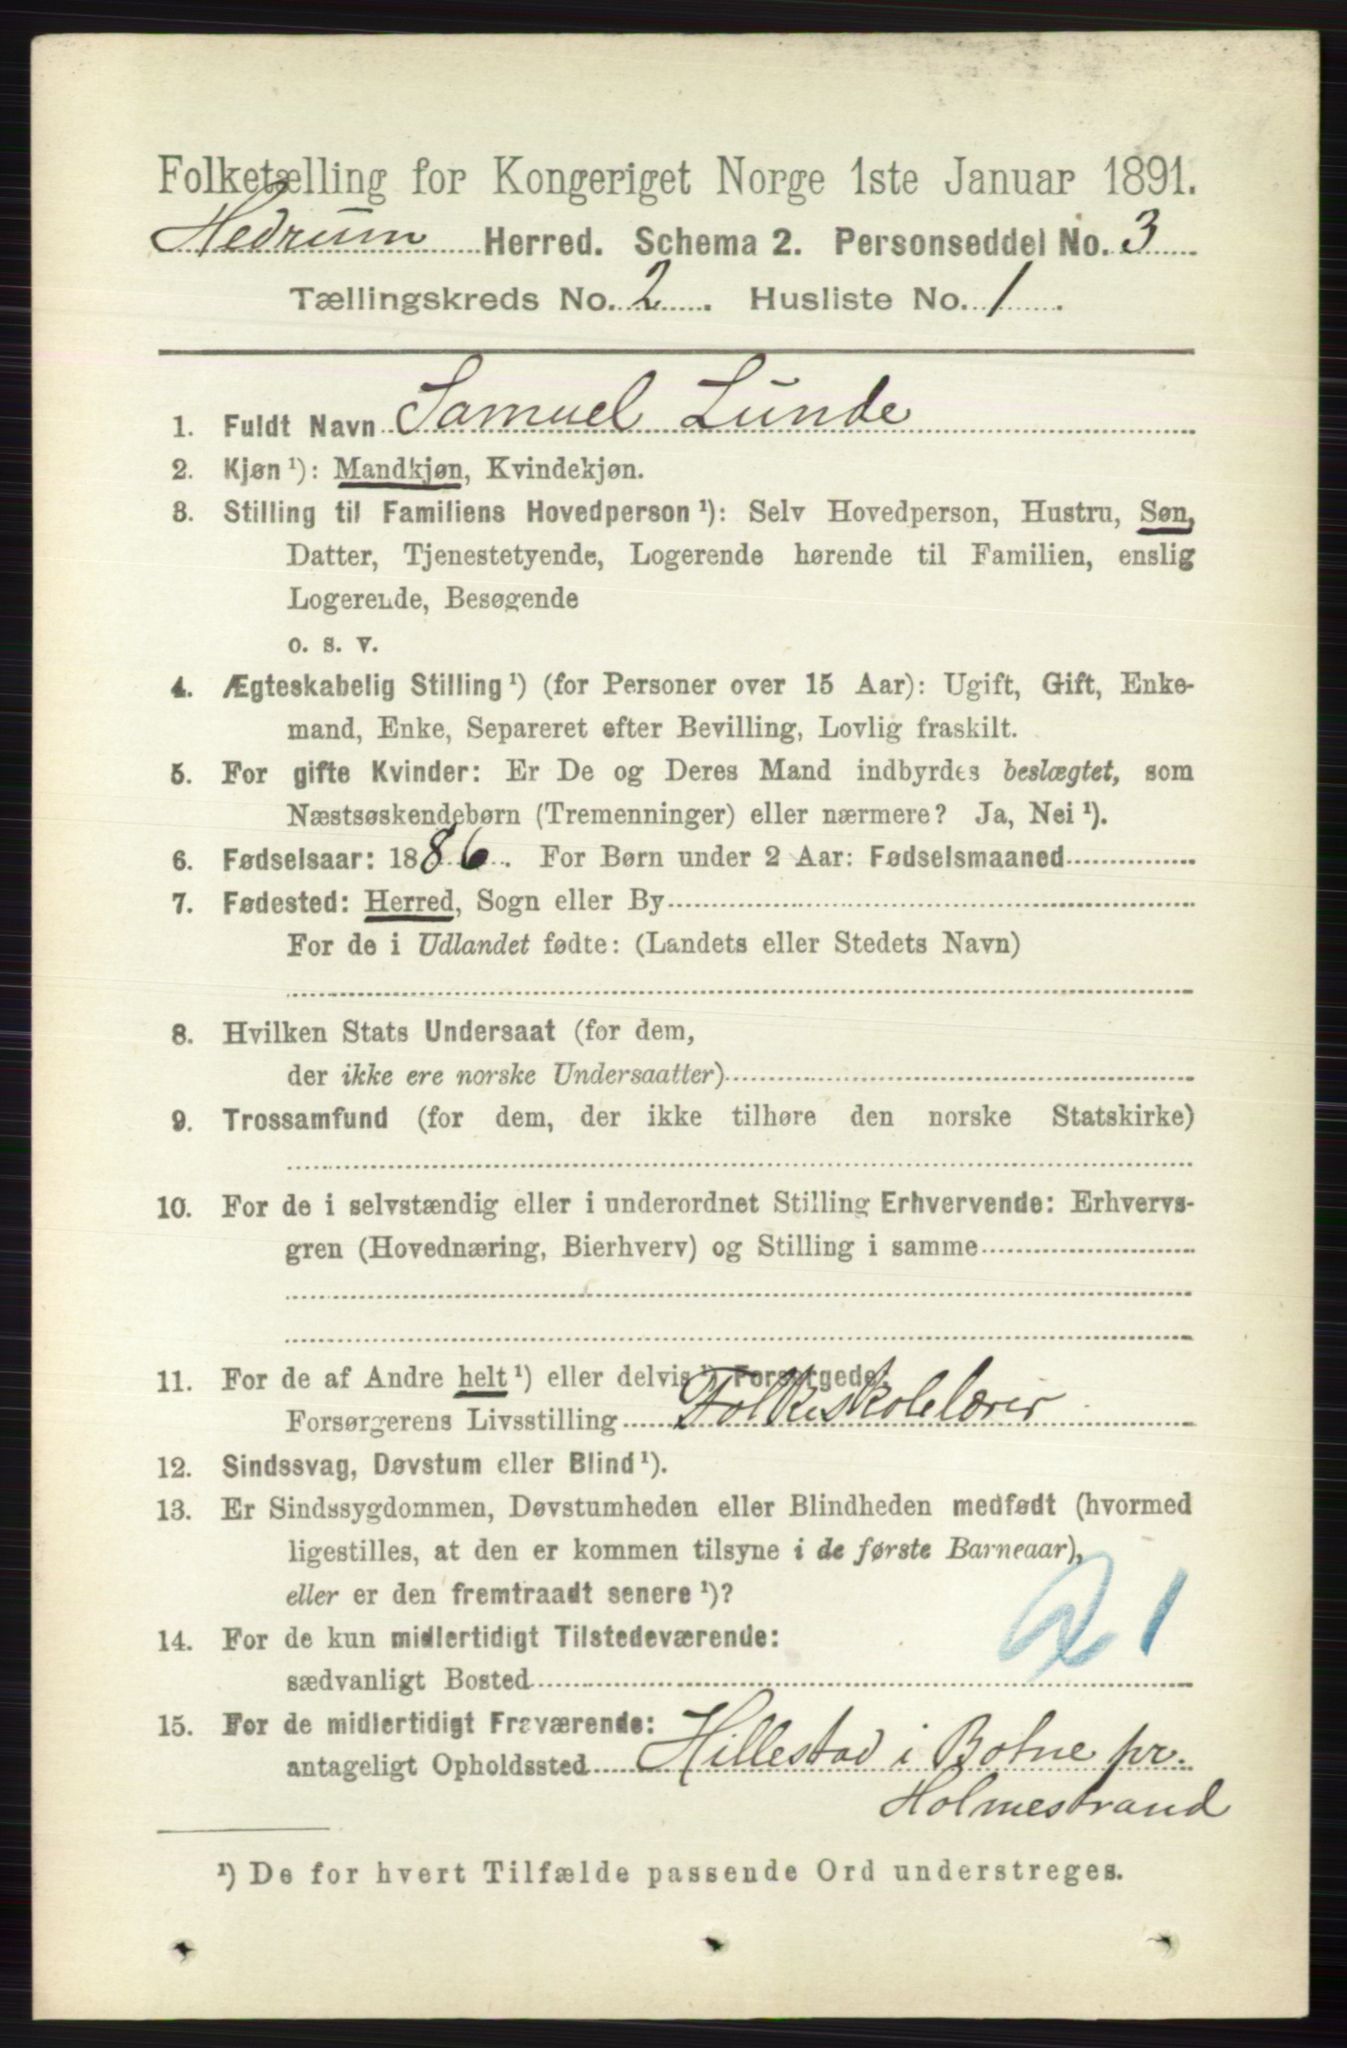 Folketælling for Kongeriget Norge 1ste Januar 1891.
Hedrum Herred. Schema 2. Personseddel No. 3
Tællingskreds No. 2. Husliste No. 1.
1. Fuldt Navn Samuel Lunde
2. Kjøn ¹): Mandkjøn, Kvindekjøn.
3. Stilling til Familiens Hovedperson ¹): Selv Hovedperson, Hustru, Søn,
Datter, Tjenestetyende, Logerende hørende til Familien, enslig
Logerende, Besøgende
o. s. v.
4. Ægteskabelig Stilling ¹) (for Personer over 15 Aar): Ugift, Gift, Enke-
mand, Enke, Separeret efter Bevilling, Lovlig fraskilt.
5. For gifte Kvinder: Er De og Deres Mand indbyrdes beslægtet, som
Næstsøskendebørn (Tremenninger) eller nærmere? Ja, Nei ¹).
6. Fødselsaar: 1886. For Børn under 2 Aar: Fødselsmaaned
7. Fødested: Herred, Sogn eller By
For de i Udlandet fødte: (Landets eller Stedets Navn)
8. Hvilken Stats Undersaat (for dem,
der ikke ere norske Undersaatter)
9. Trossamfund (for dem, der ikke tilhøre den norske Statskirke)
10. For de i selvstændig eller i underordnet Stilling Erhvervende: Erhvervs-
gren (Hovednæring, Bierhverv) og Stilling i samme
11. For de af Andre helt ¹) eller delvis ¹) Forsørgede:
Forsørgerens Livsstilling Folkeskolelærer
12. Sindssvag, Døvstum eller Blind ¹).
13. Er Sindssygdommen, Døvstumheden eller Blindheden medfødt (hvormed
ligestilles, at den er kommen tilsyne i de første Barneaar),
eller er den fremtraadt senere ¹)?
21
14. For de kun midlertidigt Tilstedeværende:
sædvanligt Bosted
15. For de midlertidigt Fraværende:
antageligt Opholdssted Hillestad i Botne pr.
Holmestrand
¹) De for hvert Tilfælde passende Ord understreges.